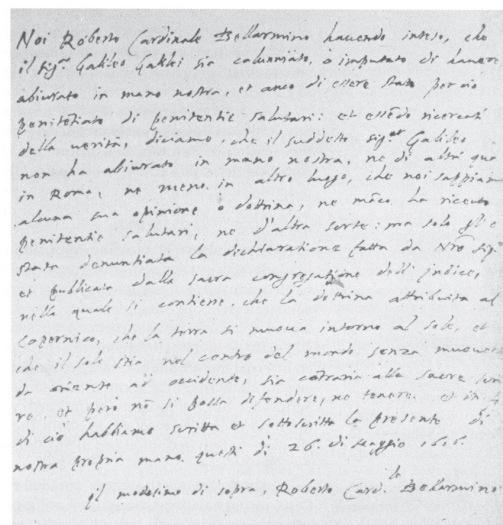 Noi Roberto Cardinale Bellarmino havendo inteso, che
il sig.r Galileo Galilei sia calunniato, o imputato di havere
abiurato in mano nostra, et anco di essere stato per ciò
penitētiato di penitentie salutari; et essēdo ricercati
della verità, diciamo, che il suddetto sig.or Galileo
non ha abiurato in mano nostra, ne di altri qua
in Roma, ne meno in altro luogo, che noi sappiamo
alcuna sua opinione o dottrina, ne māco ha ricevuto
penitentie salutari, ne d'altra sorte; ma solo gl'è
stata denuntiata la dichiaratione fatta da Nro Sig.re
et publicata dalla sacra congregatione dell'indice,
nella quale si contiene, che la dottrina attribuita al
Copernico, che la terra si muova intorno al sole, et
che il sole stia nel centro del mondo senza muoversi
da oriente ad occidente, sia cōtraria alle sacre
et però nō si possa difendere, ne tenere. et in
di ciò habbiamo scritta et sottoscritta la presente di
nostra propria mano. questi dì 26. di Maggio 1616.
Il medesimo di sopra, Roberto Card.le Bellarmino